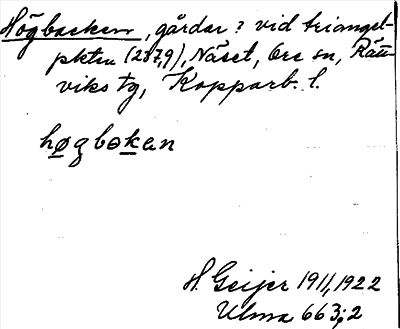 Högbacken, gårdar? vid triangel-
pktn (287,9), Näset, Ore sn, Rätt-
viks tg, Kopparb. l.
høgbokan
H. Geijer 1911, 1922
Ulma 663;2